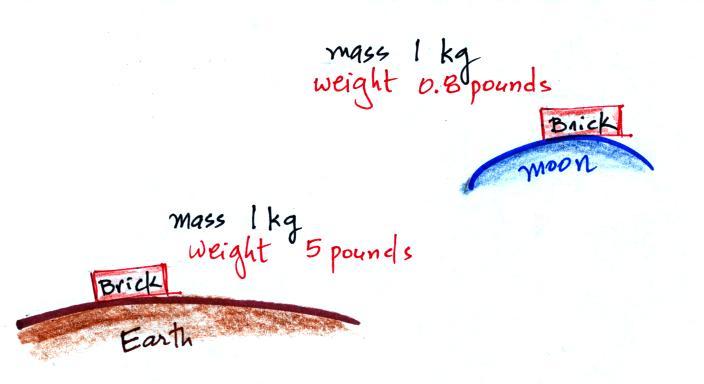 mass 1 kg
weight 0.8 pounds
Brick
moon
mass 1 kg
weight 5 pounds
Brick
Earth